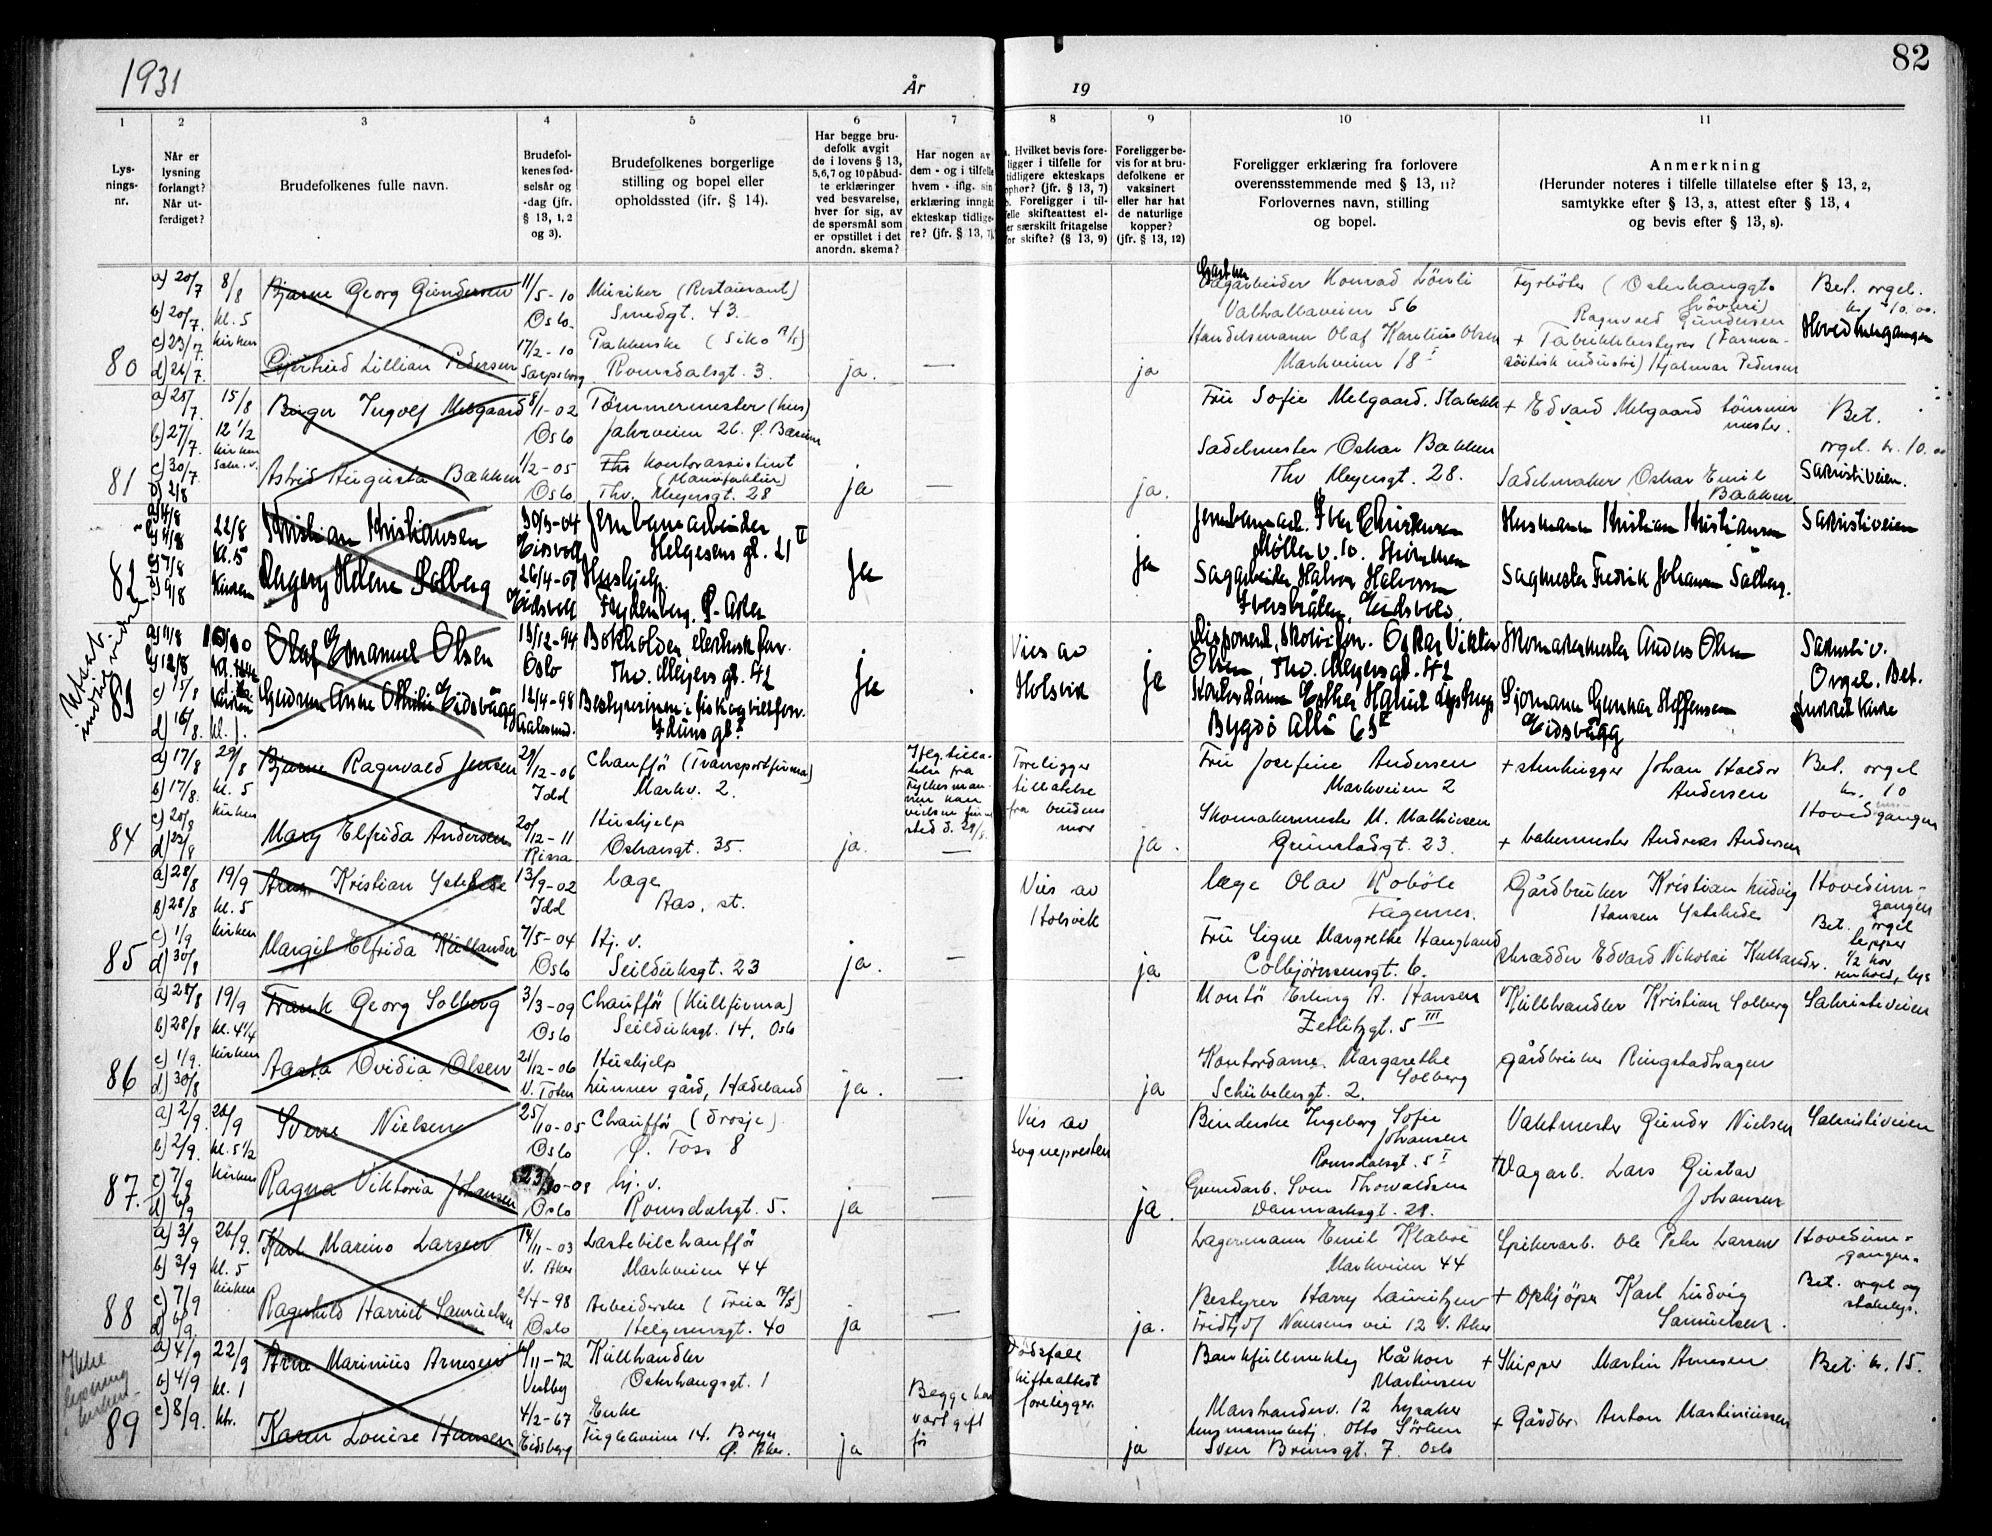 1931
År
19
82
1
2
3
4
5
6
7
8
9
10
11
Lys-
nings-
nr.
Når er
lysning
forlangt?
Når ut-
ferdiget?
Brudefolkenes fulle navn.
Brudefol-
kenes fød-
selsår og
-dag (jfr.
§ 13, 1, 2
og 3).
Brudefolkenes borgerlige
stilling og bopel eller
opholdssted (ifr. § 14).
Har begge bru-
defolk avgit
de i lovens § 13,
5, 6, 7 og 10 påbud-
te erklæringer
ved besvarelse,
hver for sig, av
de spørsmål som
er opstillet i det
anordn. skema?
Har nogen av
dem - og i tilfelle
hvem - iflg. sin
erklæring inngåt
ekteskap tidlige-
re? (jfr. § 13, 7).
a. Hvilket bevis fore-
ligger i tilfelle for
tidligere ekteskaps
ophør? (jfr. § 13, 7)
b. Foreligger i til-
felle skifteattest el-
ler særskilt fritagelse
for skifte? (§ 13, 9)
Foreligger be-
vis for at bru-
defolkene er
vaksinert
eller har hat
de naturlige
kopper?
(jfr. § 13, 12)
Foreligger erklæring fra forlovere
overensstemmende med § 13, 11?
Forlovernes navn, stilling
og bopel.
Anmerkning
(Herunder noteres i tilfelle tillatelse efter § 13, 2,
samtykke efter § 13, 3, attest efter § 13, 4
og bevis efter § 13, 8).
80
a) 20/7
b) 20/7.
c) 23/7.
d) 26/7.
8/8
kl. 5
kirken
Bjarne Georg Gundersen
11/5-10
Oslo
Musiker (Restaurant)
Smedgt. 43.
Gjertrud Lillian Pedersen
17/2-10
Sarpsborg
Pakkerske (Siko A/S)
Romsdalsgt. 3.
ja.
—
ja
Konrad
Valhallaveien 56
Handelsmann Olaf Olsen
Markveien 18 I
Fyrbøter (Osterhausgt.
Ragnvald Gundersen
+ Fabrikkbestyrer (Farma-
søitisk industri) Hjalmar Pedersen
Bet. orgel.
kr. 10.00.
Hovedinngangen
81
15/8
12 1/2
kirken
Sakr. v.
Birger Ingolf Melgaard
8/1-02
Oslo
Tømmermester (hus)
Jahrveien 26. Ø. Bærum
Astrid Augusta Bakken
1/2-05
Oslo
Kontorassistent
(Manufaktur)
Thv. Meyersgt. 28
ja
—
ja.
Fru Sofie Melgaard. Stabekk
Sadelmester Oskar Bakken
Thv Meyersgt. 28.
+ Edvard Melgaard tømmer
mester.
Sadelmaker Oskar Emil
Bakken
Bet.
orgel. kr. 10.00
Sakristiveien.
82
22/8
kl. 5
Kirken
Kristian Kristiansen
30/3-04
Eidsvoll
Jernbanearbeider
Helgesens gt. 21 II
Dagny Helene Solberg
26/4-01
Eidsvoll
Hushjelp
Frydenberg. Ø. Aker
Ja
Ja
Jernbanearb. Iver Christensen
Møller v. 10. Strømmen
Sagarbeider Halvor Halvorsen
Eidsvold.
Husmann Kristian Kristiansen
Sagmester Fredrik Johansen Solberg.
Sakristiveien
83
Olaf Emanuel Olsen
13/12-94
Oslo
Bokholder elektrisk forr.
Thv. Meyers gt. 42
Gudrun Anne Othilie Eidsvågg
12/4-98
Aalesund.
Bestyrerinne i fisk og viltforr.
Iduns gt.
Ja
Vies av
Holsvik
Ja
Disponent, skotøiforr. Oskar Viktor
Olsen, Thv. Meyers gt. 42
Bygdø Allé 65 II
Skomakermester Anders Olsen
Sjømann Gunnar Steffensen
Eidsvågg
Sakristi v.
Orgel. Bet.
84
a) 17/8
b) 17/8.
c) 20/8
29/8
kl. 5
kirken
Bjarne Ragnvald Jensen
29/12-06
Idd
Chauffør (Transportfirma)
Markv. 2.
Mary Elfrida Andersen
20/12-11
Rissa
Hushjelp
Ostrarsgt. 35.
ja.
Iflg. tilla-
telse fra
Fylkesman-
nen kan
vielsen finne
sted d. 29/8.
—
Foreligger
tillatelse
fra brudens
mor
ja.
Fru Josefine Andersen
Markveien 2
Skomakermester M. Mathisen
Grimstadgt. 23.
+ stenhugger Johan Haldor
Andersen
+ bakermester Andreas Andersen
Bet. orgel
kr. 10
Hovedinngangen
85
a) 28/8
b) 28/8
c) 1/9
d) 30/8
19/9
kl. 5
kirken
Kristian Ystehede
13/9-02
Idd
læge
Aas. st.
Margit Elfrida Kullander
7/5-04
Oslo
Hj. v.
Seilduksgt. 23
ja.
—
Vies av
Holsvik
ja
læge Olav Kobole
Fagernes.
Fru Signe Margrethe Haugland
Colbjørnsensgt. 6.
Gårdbruker Kristian Ludvig
Hansen Ystehede
skrædder Edvard Nikolai Kullander.
Hovedinn-
gangen
Bet. orgel
løpper
1/2 kor
86
a) 28/8
b) 28/8
c) 1/9.
d) 30/8
19/9
kl. 4 1/4
kirken
Frank Georg Solberg
3/3-09
Oslo
Chauffør (Kullfirma)
Seilduksgt. 14. Oslo
Aasta Ovidia Olsen
21/12-06
V. Toten
Hushjelp
Lunner gård, Hadeland
ja.
—
ja
Montør Erling A. Hansen
Zetlitzgt. 5 III
Kontordame. Margarethe
Solberg
Schübelersgt. 2.
Kullhandler Kristian Solberg
gårdbruker Ringstadhagen
Sakristiveien
87.
a) 2/9
b) 2/9.
c) 7/9
d) 6/9
26/9
kl. 5 1/2
kirken
Sverre Nielsen
25/10-05
Oslo
Chauffør (drosje)
Ø. Foss 8
Ragna Viktoria Johansen
23/10-08
Oslo
hj. v.
Romsdalsgt. 5.
ja
—
Vies av
Sognepresten
ja.
Binderske Ingeborg Sofie
Johansen
Romsdalsgt. 5 I
Grundarb. Sven Thorvaldsen
Danmarksgt. 29.
Vaktmester Gunder Nielsen
+ Dagarb. Lars Gustav
Johansen
Sakristiveien
88
a) 3/9
b) 3/9
c) 7/9
d) 6/9.
26/9.
kl. 5
kirken
Karl Marino Larsen
14/11-03
V. Aker
Lastebilchauffør
Markveien 44
Ragnhild Harriet Samuelsen
2/4-98
Oslo
Arbeiderske (Freia A/S)
Helgesensgt. 40
ja
—
ja.
Lagermann Emil Klabøe
Markveien 44
Bestyrer Harry Lauritzen
Fridtjof Nansens vei 12 V. Aker
Spikerarb. Ole Peter Larsen
+ Opkjøper Karl Ludvig
Samuelsen.
Hovedinn-
gangen.
Bet. orgel og
stakelys.
Ikke
lysning
kirken
89
a) 4/9
b) 4/9
c) 8/9.
22/9
kl. 1
ktr.
Arne Marinius Arnesen
6/11-72
Vestby
Kullhandler
Osterhausgt. 1
Karen Louise Hansen
4/2-67
Eidsberg
Enke
Fuglehaugen 14. Bryn
Ø. Aker.
ja
Begge har
vært gift
før
Dødsfall
skifteattest
foreligger.
ja
Bankfullmektig Håkon
Martinsen
Marstranderv. 12 Lysaker
Otto Sørlien
Sven Brunsgt. 7. Oslo
+ Skipper Martin Arnesen
+ Gårdbr. Anton Martiniussen
Bet. kr. 15.